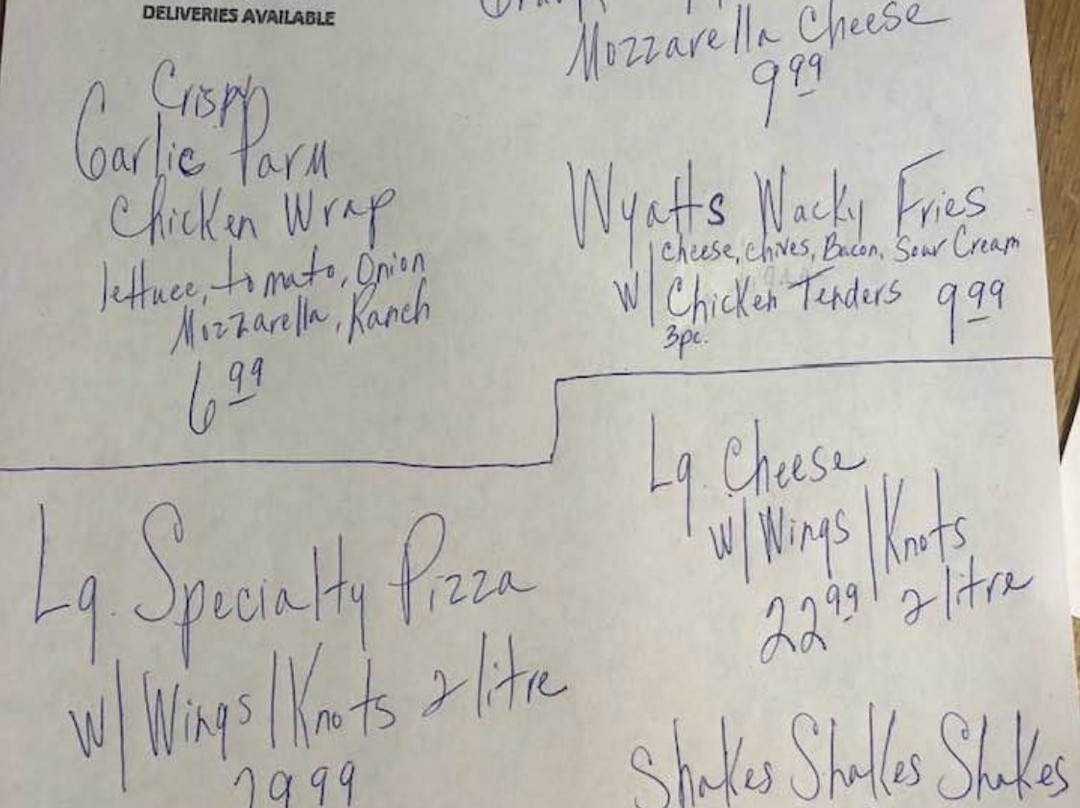 DELIVERIES AVAILABLE
Crispy
Garlic Parm
Chicken Wrap
lettuce, tomato, Onion
Mozzarella, Ranch
6 99
Mozzarella Cheese
9 99
Wyatts Wacky Fries
cheese, chives, Bacon, Sour Cream
w/ Chicken Tenders 9 99
3pc.
Lg. Specialty Pizza
w/ Wings / Knots 2 litre
29 99
Lg. Cheese
w/ Wings / Knots
22 99 2 litre
Shakes Shakes Shakes